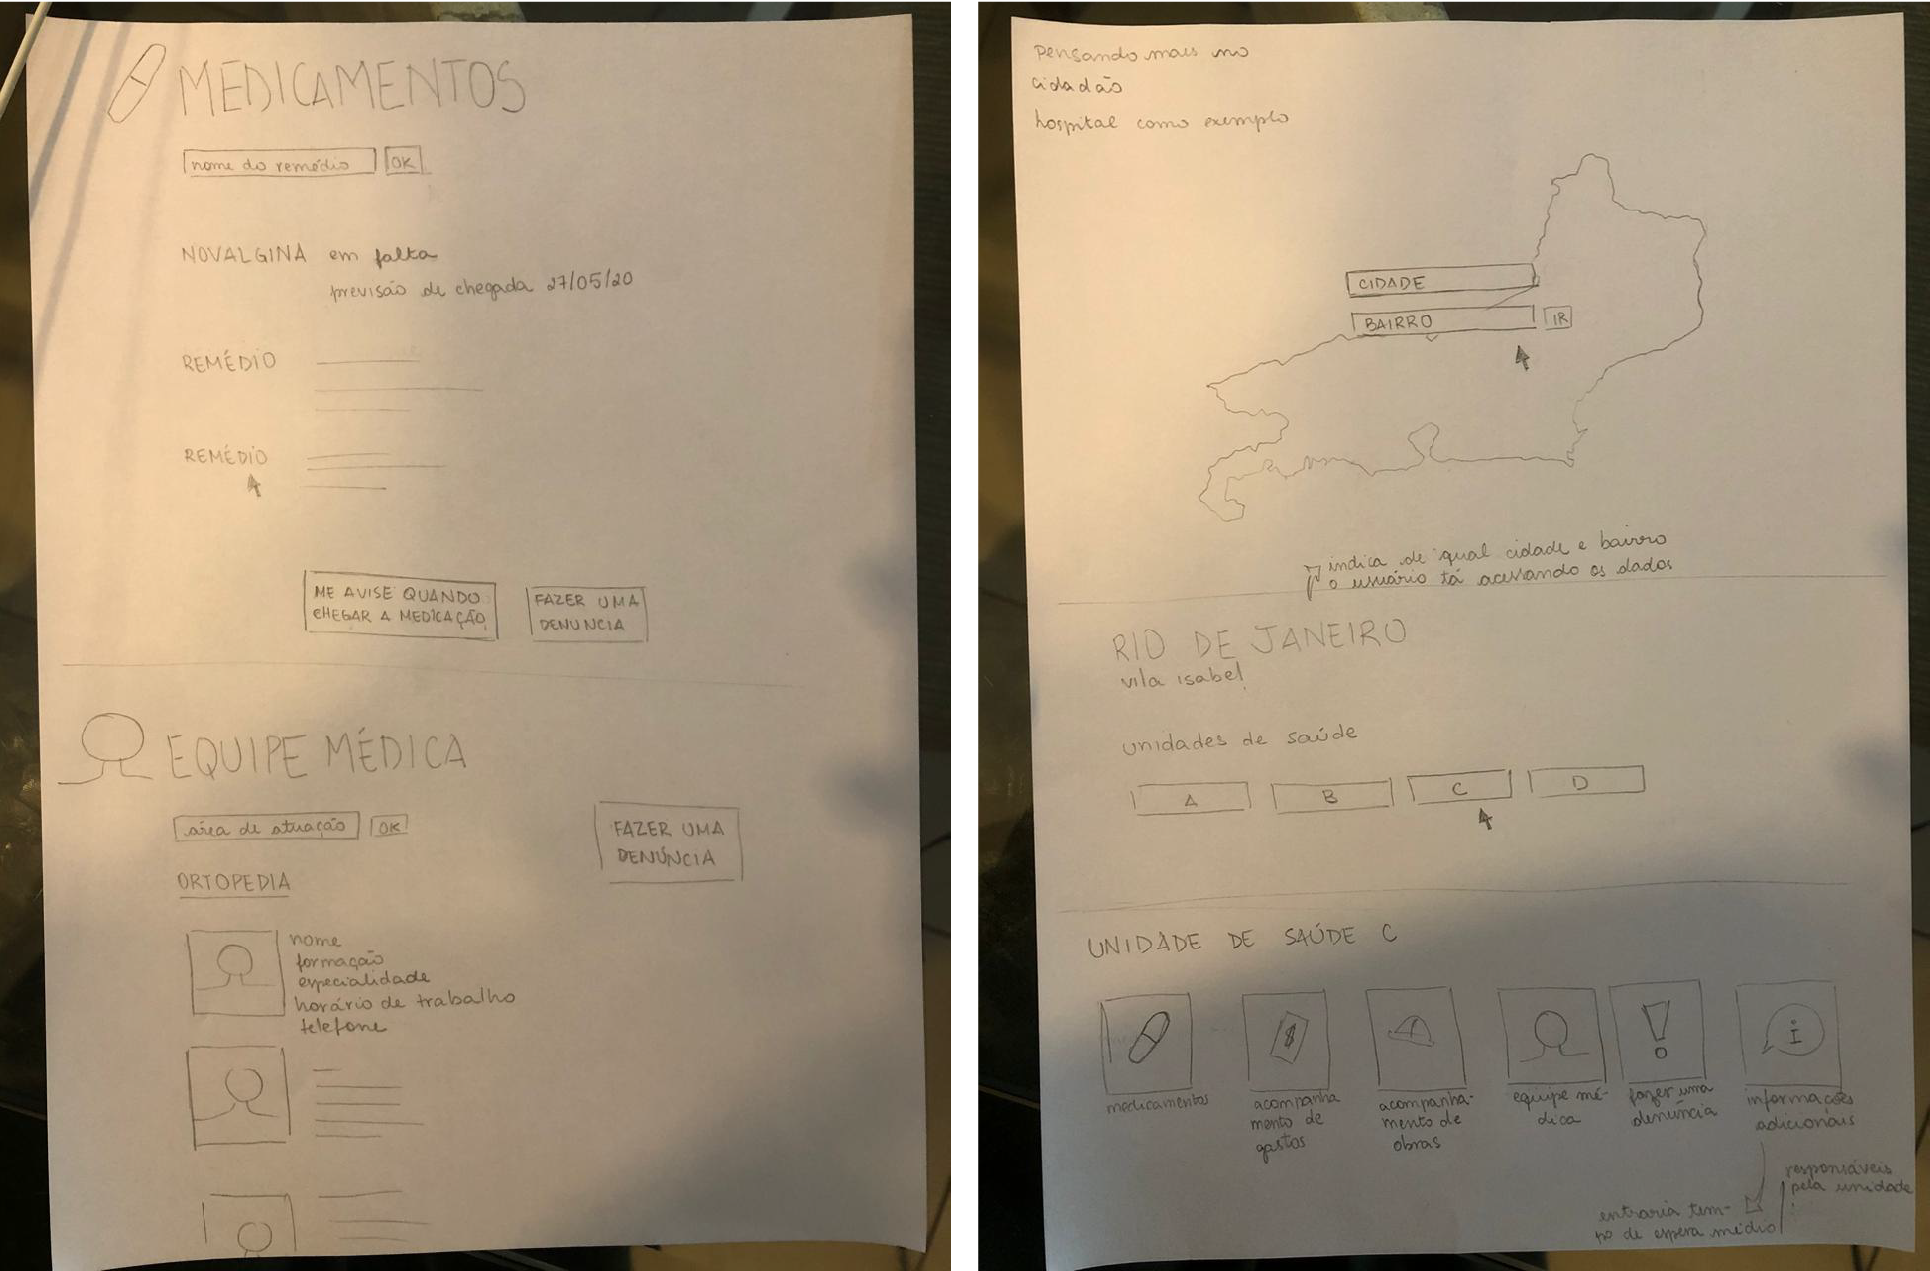 MEDICAMENTOS
nome do remédio OK
NOVALGINA em falta
previsão de chegada 27/05/20
REMÉDIO
REMÉDIO
ME AVISE QUANDO
CHEGAR A MEDICAÇÃO
FAZER UMA
DENUNCIA
EQUIPE MÉDICA
área de atuação OK
FAZER UMA
DENÚNCIA
ORTOPEDIA
nome
formação
especialidade
horário de trabalho
telefone
pensando mais no
cidadão
hospital como exemplo
CIDADE
BAIRRO IR
indica de qual cidade e bairro
o usuário tá acessando os dados
RIO DE JANEIRO
vila isabel
unidades de saúde
A B C D
UNIDADE DE SAÚDE C
$
i
medicamentos
acompanha
mento de
gastos
acompanha-
mento de
obras
equipe mé-
dica
fazer uma
denúncia
informações
adicionais
responsáveis
pela unidade
entraria tem-
po de espera médio